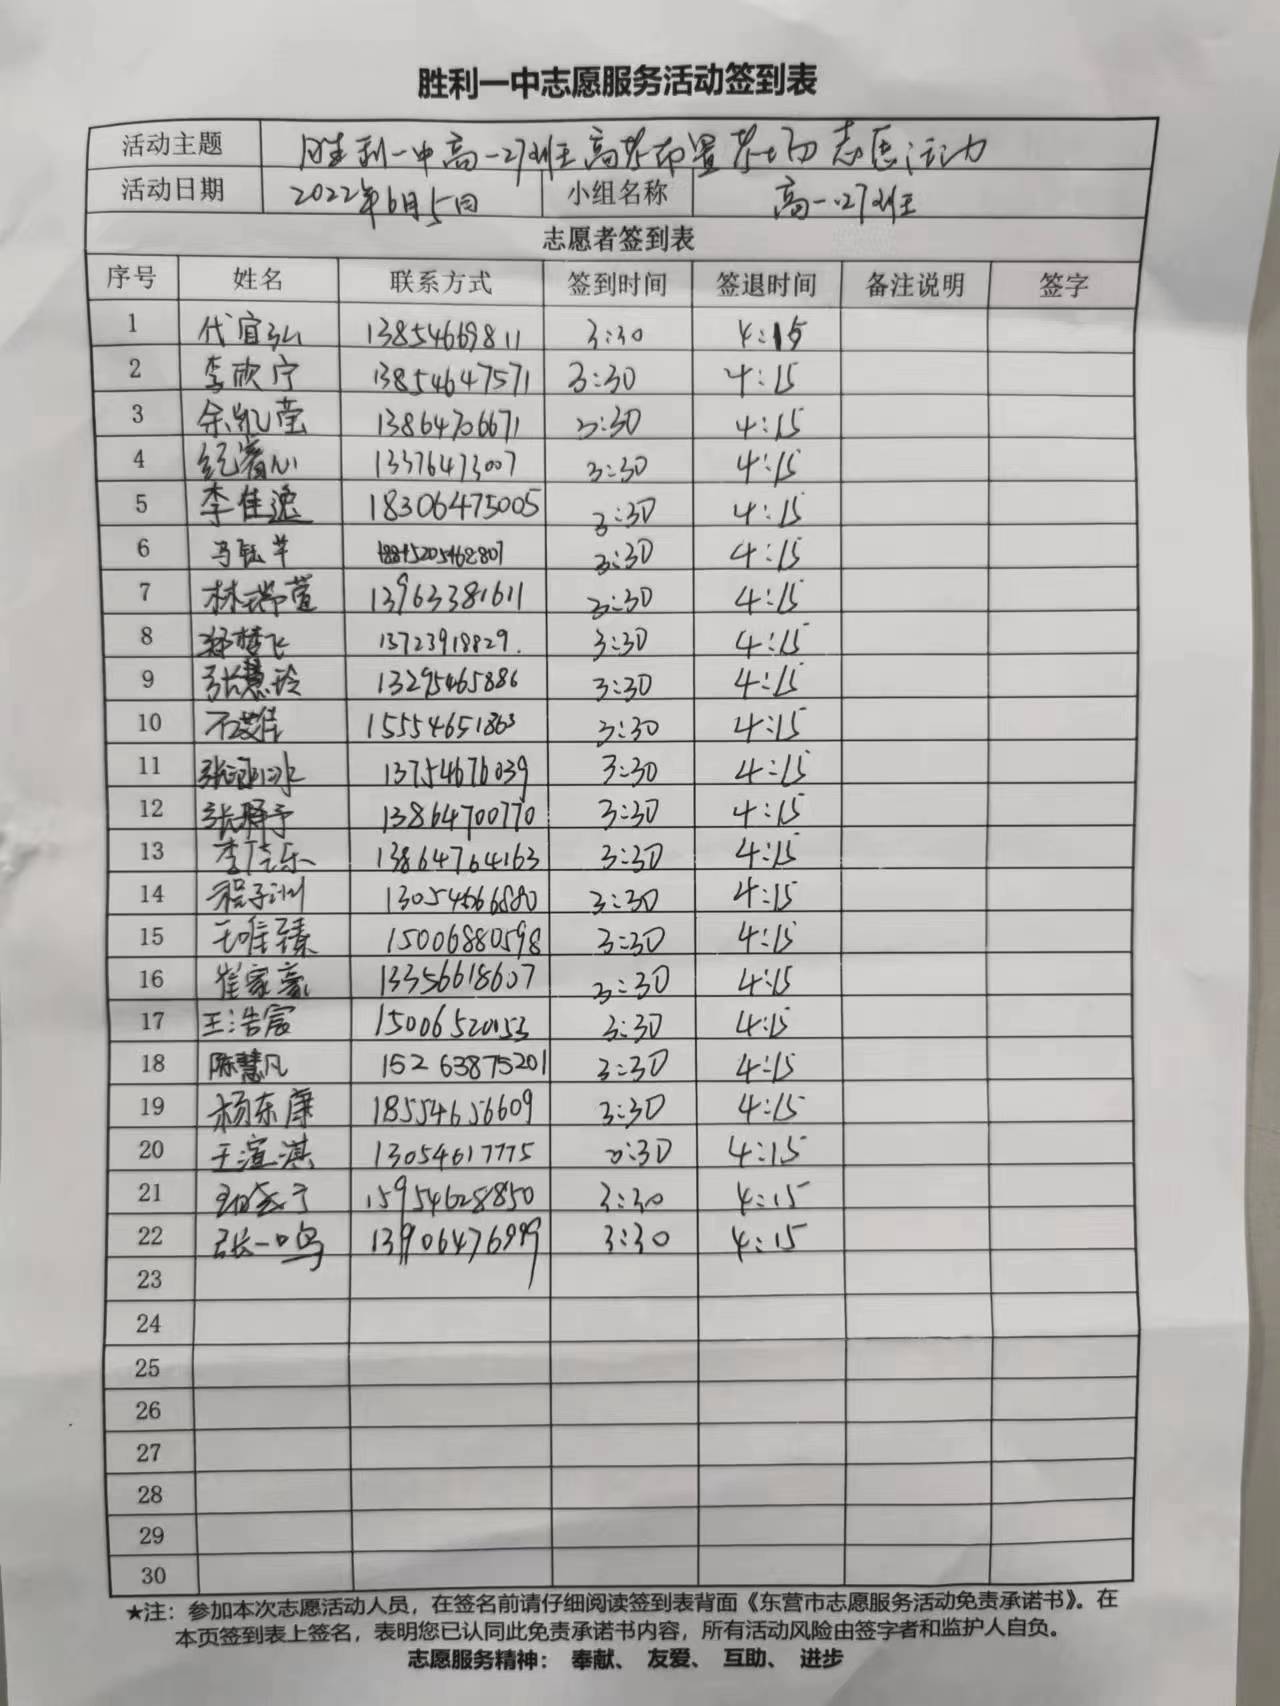 胜利一中志愿服务活动签到表
活动主题 胜利一中高一27班高考布置考场志愿活动
活动日期 2022年6月5日 小组名称 高一.27班
志愿者签到表
序号 姓名 联系方式 签到时间 签退时间 备注说明 签字
1 代宜弘 13854669811 3:30 4:15
2 李欣宁 13854647571 3:30 4:15
3 余凯莹 13864706671 3:30 4:15
4 纪睿心 13376473007 3:30 4:15
5 李佳逸 18306475005 3:30 4:15
6 3:30 4:15
7 林瑞萱 13963381611 3:30 4:15
8 郑梦飞 13723918829. 3:30 4:15
9 张慧玲 13295465886 3:30 4:15
10 15554651863 3:30 4:15
11 13754676039 3:30 4:15
12 13864700770 3:30 4:15
13 李佳乐 13864764163 3:30 4:15
14 程子洲 13054666880 3:30 4:15
15 王唯臻 15006880598 3:30 4:15
16 崔家豪 13356618607 3:30 4:15
17 王浩宸 15006520153 3:30 4:15
18 陈慧凡 15263875201 3:30 4:15
19 杨东康 18554656609 3:30 4:15
20 王渲淇 13054617775 3:30 4:15
21 15954628850 3:30 4:15
22 张一鸣 13906476999 3:30 4:15
23
24
25
26
27
28
29
30
★注：参加本次志愿活动人员，在签名前请仔细阅读签到表背面《东营市志愿服务活动免责承诺书》。在
本页签到表上签名，表明您已认同此免责承诺书内容，所有活动风险由签字者和监护人自负。
志愿服务精神： 奉献、 友爱、 互助、 进步